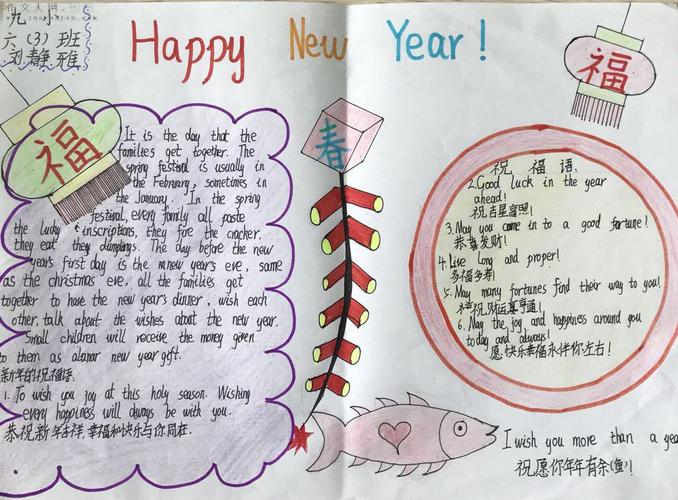 作文人网
九
六（3）班
刘静雅
Happy New Year!
福
福
It is the day that the
families get together. The
spring festival is usually in
the February, sometimes in
the January. In the spring
festival, every family all paste
the lucky inscriptions, they fire the cracker,
they eat they dumplings. The day before the new
year's first day is the new year's eve, same
as the christmas eve. all the families get
together to have the new year's dinner, wish each
other, talk about the wishes about the new year.
Small children will receive the money given
to them as alanar new year gift.
新年的祝福语:
1. To wish you joy at this holy season. Wishing
every happiness will always be with you.
恭祝新年吉祥,幸福和快乐与你同在.
春
祝福语:
2. Good luck in the year
ahead!
祝吉星高照!
3. May you come in to a good fortune!
恭喜发财!
4. Live long and proper!
多福多寿!
5. May many fortunes find their way to you!
祝财运亨通!
6. May the joy and happiness around you
today and always!
愿快乐幸福永伴你左右!
I wish you more than a yea
祝愿你年年有余(鱼)!